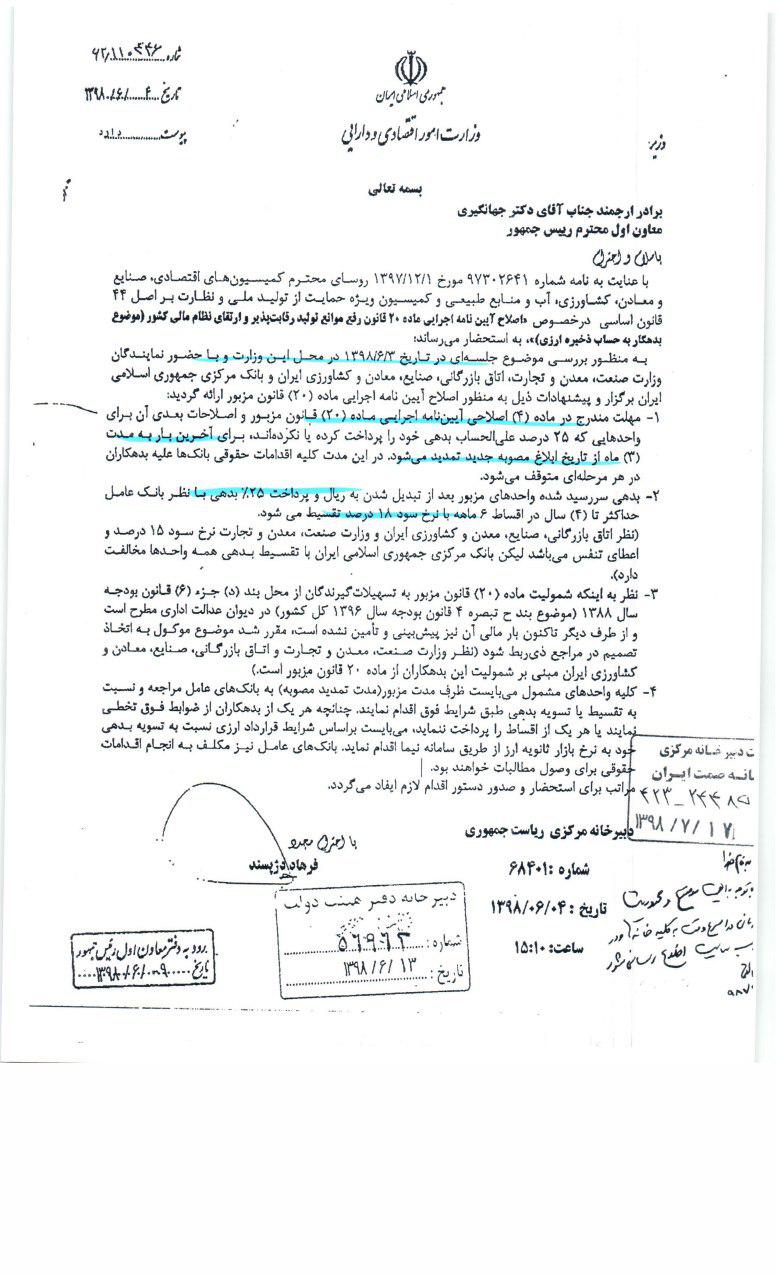 شماره ۶۲/۱۱۰۳۴۶
تاریخ ۱۳۹۸/۶/۴
پیوست دارد
جمهوری اسلامی ایران
وزارت امور اقتصادی و دارایی
وزیر
بسمه تعالی
برادر ارجمند جناب آقای دکتر جهانگیری
معاون اول محترم رییس جمهور
با سلام و احترام
با عنایت به نامه شماره ۹۷۳۰۲۶۴۱ مورخ ۱۳۹۷/۱۲/۱ روسای محترم کمیسیون‌های اقتصادی، صنایع
و معادن، کشاورزی، آب و منابع طبیعی و کمیسیون ویژه حمایت از تولید ملی و نظارت بر اصل ۴۴
قانون اساسی درخصوص «اصلاح آیین نامه اجرایی ماده ۲۰ قانون رفع موانع تولید رقابت‌پذیر و ارتقای نظام مالی کشور (موضوع
بدهکار به حساب ذخیره ارزی)»، به استحضار می‌رساند؛
به منظور بررسی موضوع جلسه‌ای در تاریخ ۱۳۹۸/۶/۳ در محل این وزارت و با حضور نمایندگان
وزارت صنعت، معدن و تجارت، اتاق بازرگانی، صنایع، معادن و کشاورزی ایران و بانک مرکزی جمهوری اسلامی
ایران برگزار و پیشنهادات ذیل به منظور اصلاح آیین نامه اجرایی ماده (۲۰) قانون مزبور ارائه گردید:
۱- مهلت مندرج در ماده (۴) اصلاحی آیین‌نامه اجرایی ماده (۲۰) قانون مزبور و اصلاحات بعدی آن برای
واحدهایی که ۲۵ درصد علی‌الحساب بدهی خود را پرداخت کرده یا نکرده‌اند، برای آخرین بار به مدت
(۳) ماه از تاریخ ابلاغ مصوبه جدید تمدید می‌شود. در این مدت کلیه اقدامات حقوقی بانک‌ها علیه بدهکاران
در هر مرحله‌ای متوقف می‌شود.
۲- بدهی سررسید شده واحدهای مزبور بعد از تبدیل شدن به ریال و پرداخت ۲۵٪ بدهی با نظر بانک عامل
حداکثر تا (۴) سال در اقساط ۶ ماهه با نرخ سود ۱۸ درصد تقسیط می شود.
(نظر اتاق بازرگانی، صنایع، معدن و کشاورزی ایران و وزارت صنعت، معدن و تجارت نرخ سود ۱۵ درصد و
اعطای تنفس می‌باشد لیکن بانک مرکزی جمهوری اسلامی ایران با تقسیط بدهی همه واحدها مخالفت
دارد).
۳- نظر به اینکه شمولیت ماده (۲۰) قانون مزبور به تسهیلات‌گیرندگان از محل بند (د) جزء (۶) قانون بودجه
سال ۱۳۸۸ (موضوع بند ح تبصره ۴ قانون بودجه سال ۱۳۹۶ کل کشور) در دیوان عدالت اداری مطرح است
و از طرف دیگر تاکنون بار مالی آن نیز پیش‌بینی و تأمین نشده است، مقرر شد موضوع موکول به اتخاذ
تصمیم در مراجع ذی‌ربط شود (نظر وزارت صنعت، معدن و تجارت و اتاق بازرگانی، صنایع، معادن و
کشاورزی ایران مبنی بر شمولیت این بدهکاران از ماده ۲۰ قانون مزبور است.)
۴- کلیه واحدهای مشمول می‌بایست ظرف مدت مزبور(مدت تمدید مصوبه) به بانک‌های عامل مراجعه و نسبت
به تقسیط یا تسویه بدهی طبق شرایط فوق اقدام نمایند. چنانچه هر یک از بدهکاران از ضوابط فوق تخطی
نمایند یا هر یک از اقساط را پرداخت ننماید، می‌بایست براساس شرایط قرارداد ارزی نسبت به تسویه بدهی
خود به نرخ بازار ثانویه ارز از طریق سامانه نیما اقدام نماید. بانک‌های عامل نیز مکلف به انجام اقدامات
حقوقی برای وصول مطالبات خواهند بود.
مراتب برای استحضار و صدور دستور اقدام لازم ایفاد می‌گردد.
با احترام مجدد
فرهاد دژپسند
دبیرخانه مرکزی
خانه صمت ایران
۱۳۹۸/۷/۱۷
دبیرخانه مرکزی ریاست جمهوری
شماره : ۶۸۴۰۱
تاریخ : ۱۳۹۸/۰۶/۰۴
ساعت: ۱۵:۱۰
دبیرخانه دفتر هیئت دولت
شماره: ۵۶۹۶۳
تاریخ: ۱۳۹۸/۶/۱۳
ورود به دفتر معاون اول رئیس جمهور
تاریخ ۱۳۹۸/۶/۰۹
بنام خدا